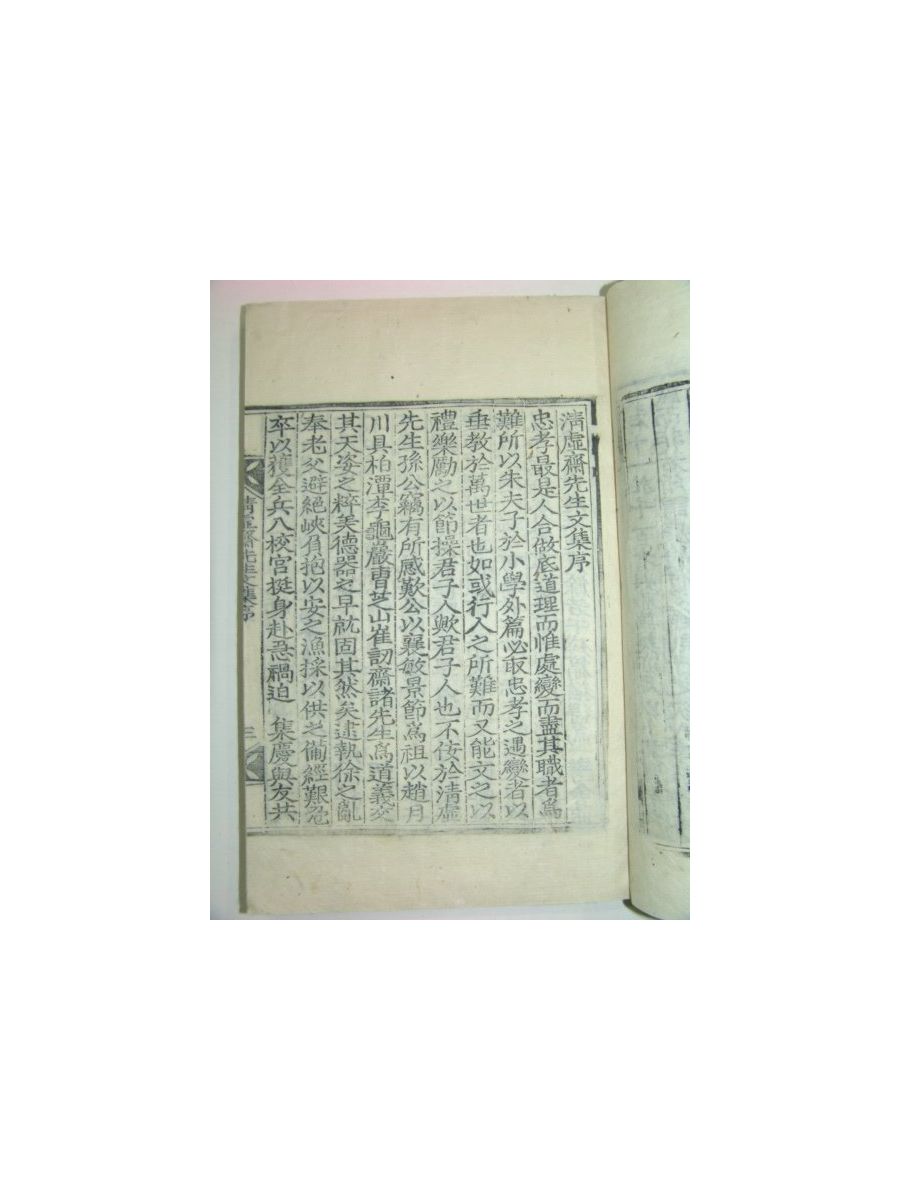 清虛齋先生文集序
忠孝最是人合做底道理而惟處變而盡其職者爲
難所以朱夫子於小學外篇必取忠孝之遇變者以
垂教於萬世者也如或行人之所難而又能文之以
禮樂勵之以節操君子人歟君子人也不侫於清虛
先生孫公竊有所感歎公以襄敏景節爲祖以趙月
川具柏潭李龜巖曺芝山崔訒齋諸先生爲道義交
其天姿之粹美德器之早就固其然矣逮執徐之亂
奉老父避絕峽負抱以安之漁採以供之備經艱危
卒以獲全兵八校宮挺身赴急禍迫 集慶與友共
清虛齋先生文集序
三